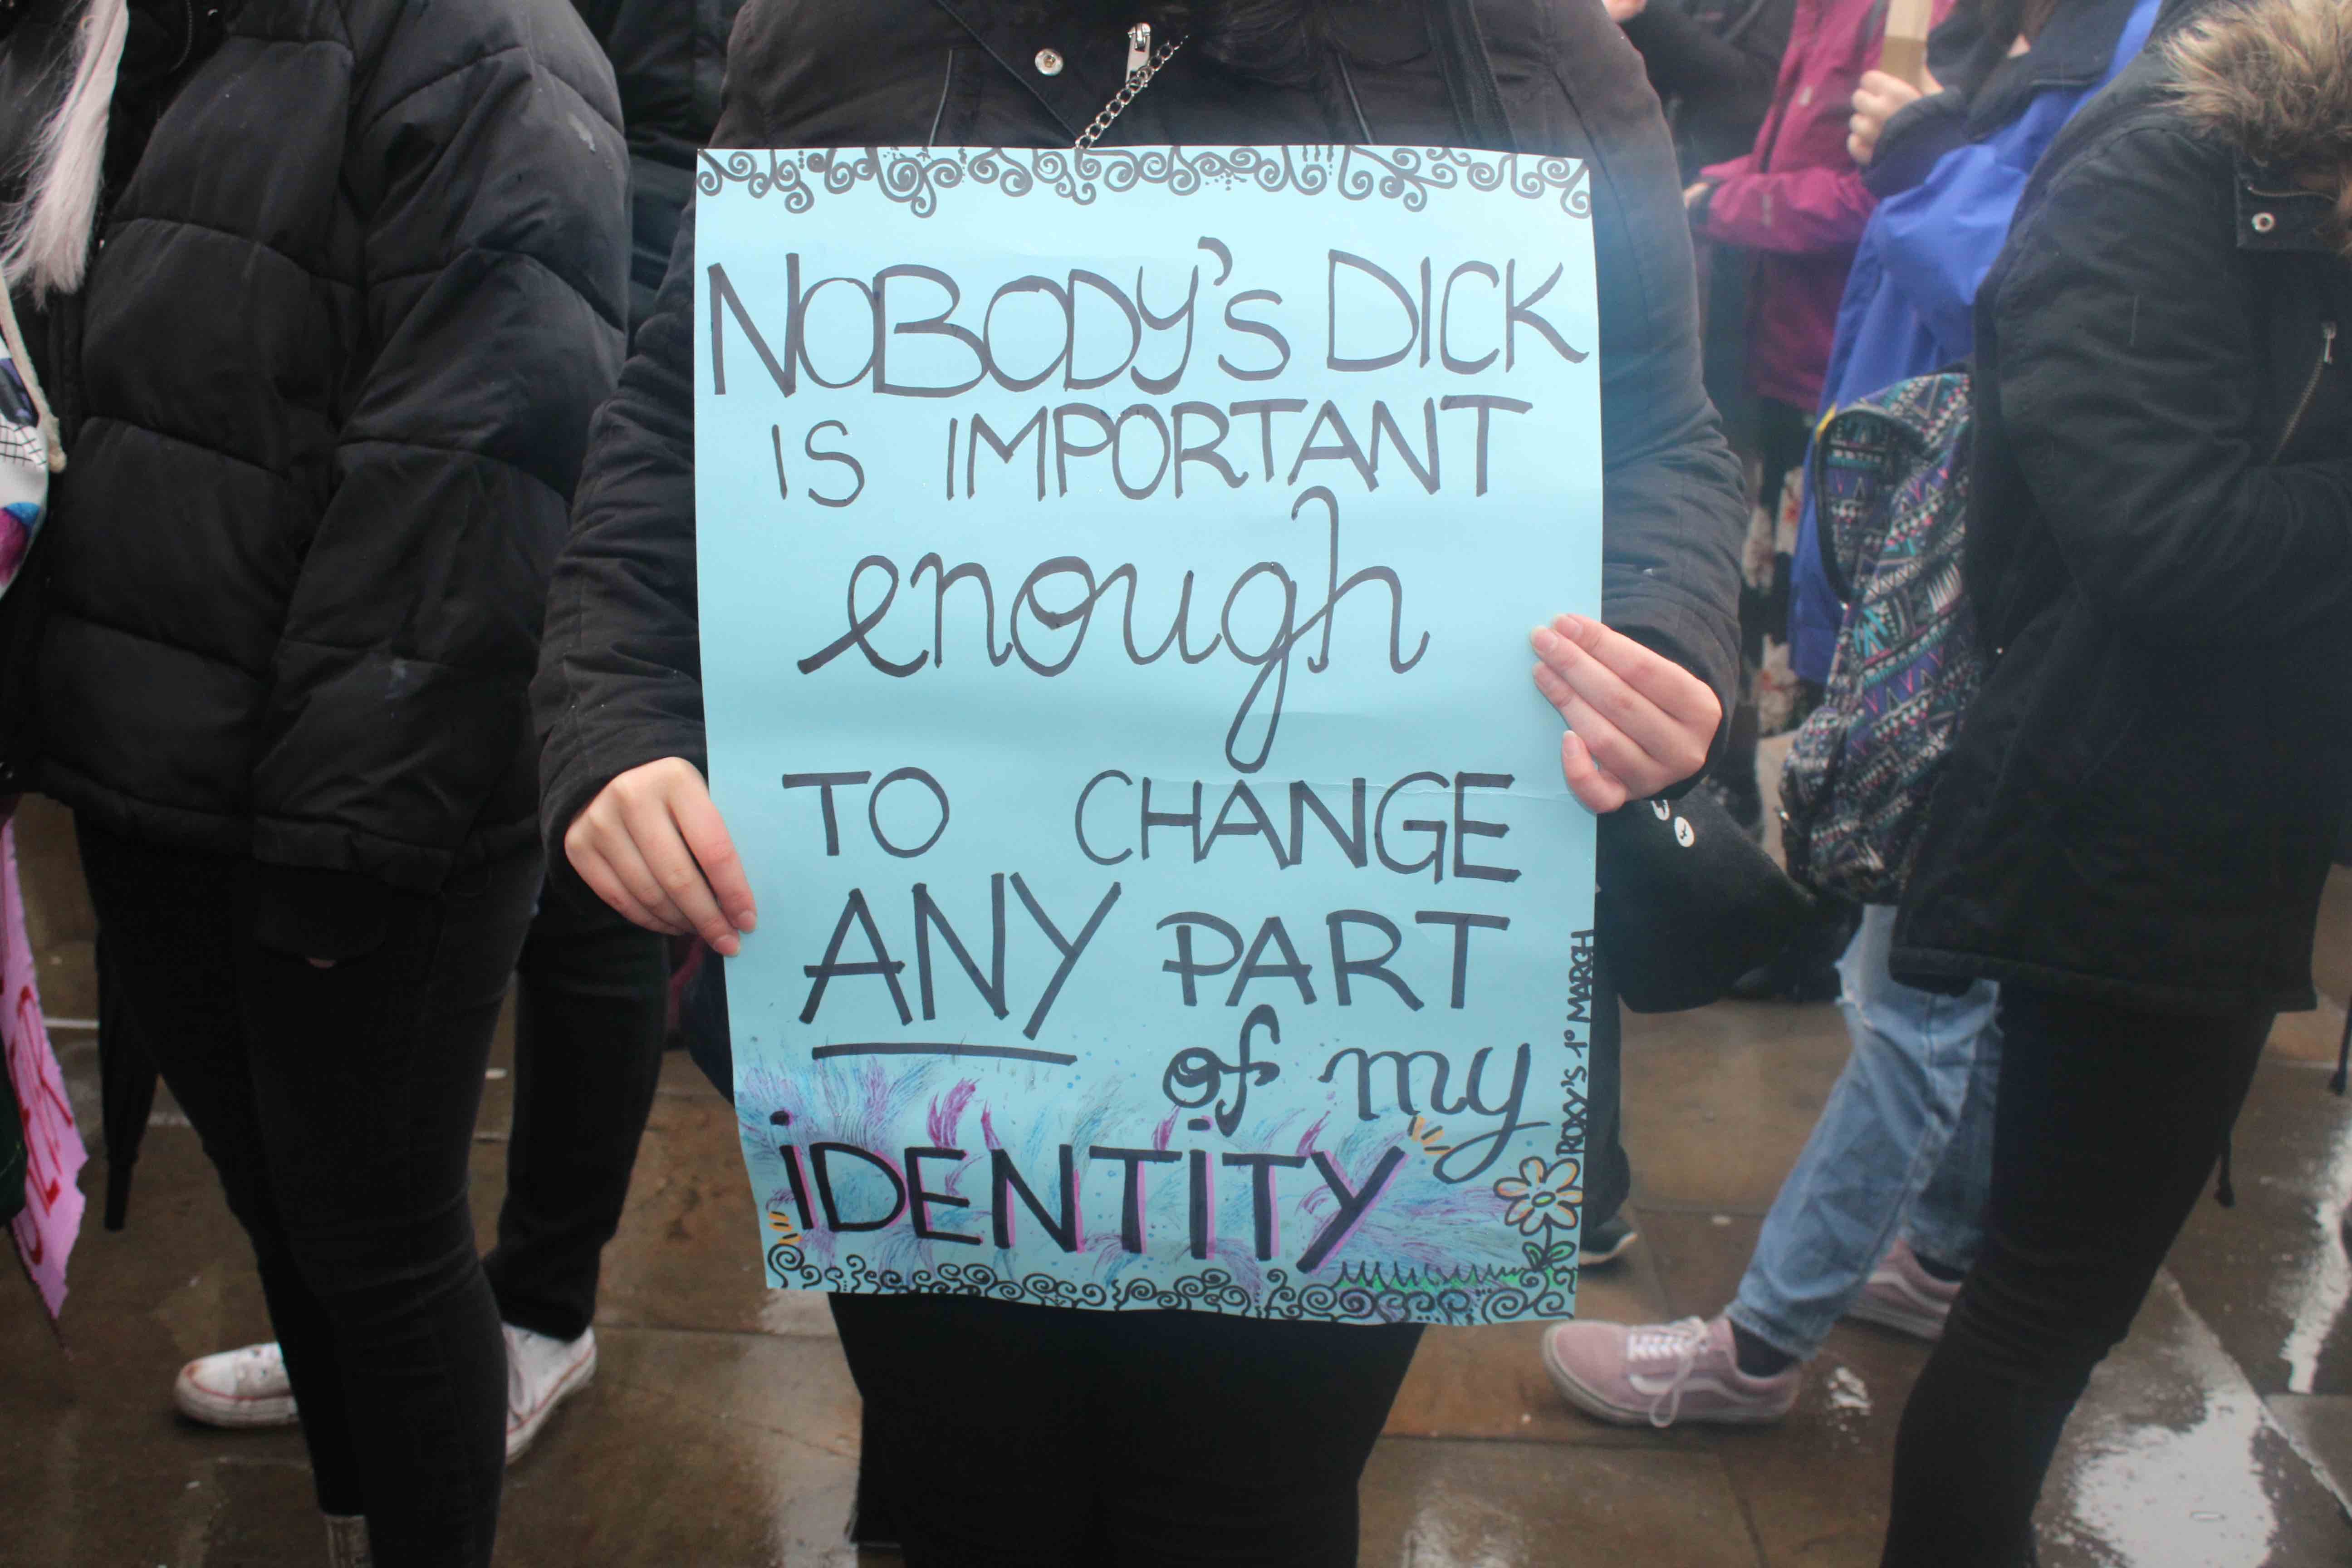 NOBODY'S DICK
IS IMPORTANT
enough
TO CHANGE
ANY PART
of my
iDENTiTY
ROXY'S 1° MARCH